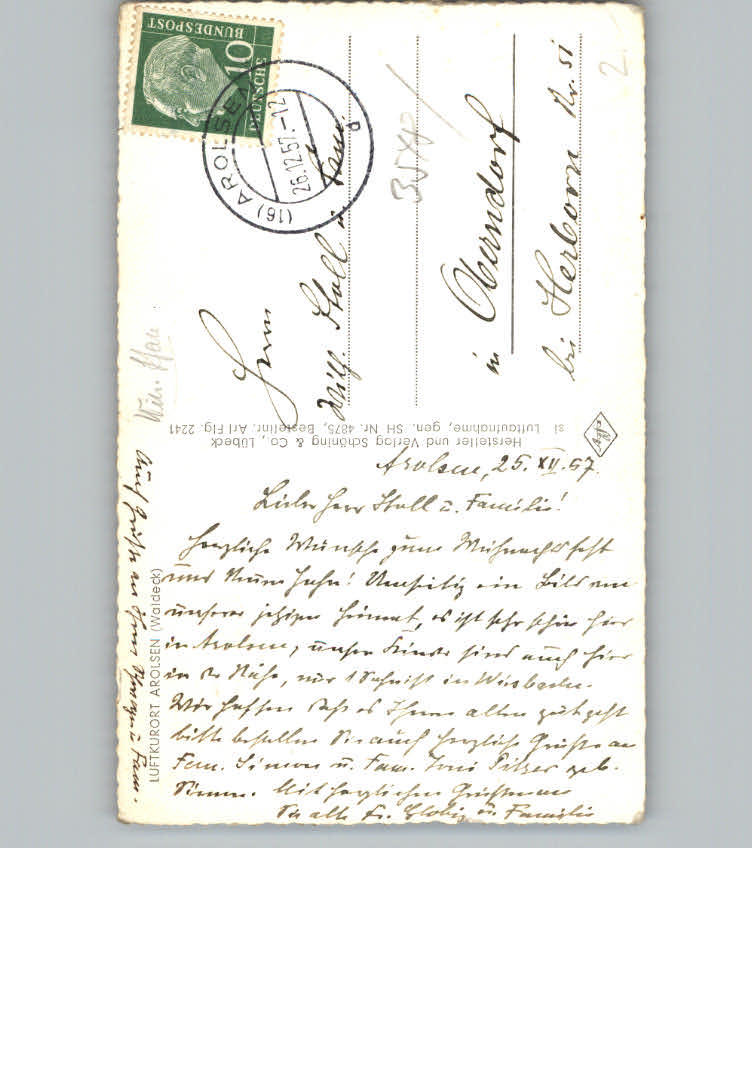 DEUTSCHE
BUNDESPOST
10
(16) AROLSEN
26.12.57.-12
d
Herrn
Wilh. Stoll u. Fam.
in Oberndorf
bei Herborn Nr. 51
Hersteller und Verlag Schöning & Co., Lübeck
si Luftaufnahme, gen. SH Nr. 4875, Bestellnr. Arl Flg. 2241
LUFTKURORT AROLSEN (Waldeck)
2.
Arolsen, 25. XII. 57.
Lieber Herr Stoll u. Familie!
Herzliche Wünsche zum Weihnachtsfest
und Neuen Jahr! Umseitig ein Bild von
unserer jetzigen Heimat, es ist sehr schön hier
in Arolsen, unsere Kinder sind auch hier
in der Nähe, nur 1 in Wiesbaden.
Wir hoffen daß es Ihnen allen gut geht
bitte bestellen Sie auch herzliche Grüße an
Fam. Simon u. Fam. geb.
Simon. Mit herzlichen Grüßen an
Sie alle Fr. u. Familie
Auch Grüße an Herrn u. Fam.